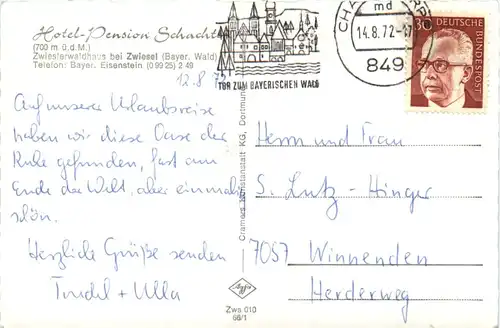 Hotel-Pension Schacht
(700 m ü.d.M.)
Zwieslerwaldhaus bei Zwiesel (Bayer. Wald)
Telefon: Bayer. Eisenstein (0 99 25) 2 49
12.8.72
Auf unserer Urlaubsreise
haben wir diese Oase der
Ruhe gefunden, fast am
Ende der Welt, aber einmalig
schön.
Herzliche Grüße senden
Trudel + Ulla
Cramers Kunstanstalt KG, Dortmund
Agfa
Zws 010
68/1
TOR ZUM BAYERISCHEN WALD
CHAM
md
14.8.72
849
30
DEUTSCHE
BUNDESPOST
Herrn und Frau
S. Lutz-Hinger
7057 Winnenden
Herderweg